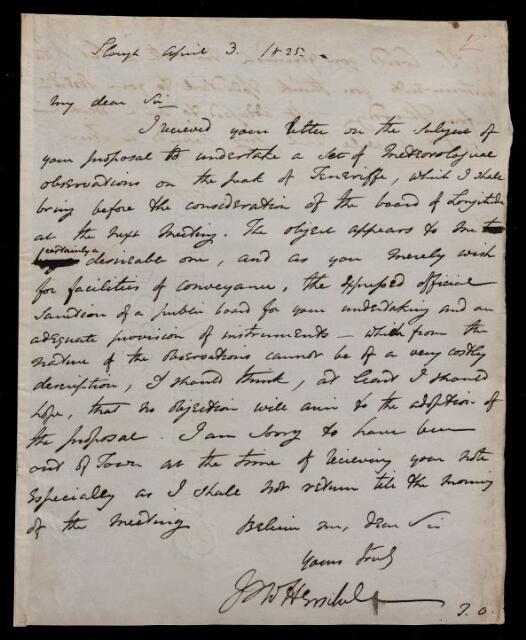 Slough April 3. 1825.
My dear Sir
I recieved your letter on the subject of
your proposal to undertake a set of Meteorological
observations on the peak of Teneriffe, which I shall
bring before the consideration of the board of Longitude
at the next meeting. The object appears to me
certainly a
desireable one, and as you merely wish
for facilities of conveyance, the expressed official
sanction of a public board for your undertaking and an
adequate provision of instruments – which from the
nature of the observations cannot be of a very costly
description, I should think, at least I should
hope, that no objection will arise to the adoption of
the proposal. I am sorry to have been
out of Town at the time of recieving your note
especially as I shall not return till the morning
of the meeting
Believe me, dear Sir
Yours truly
J F W Herschel
T. O.